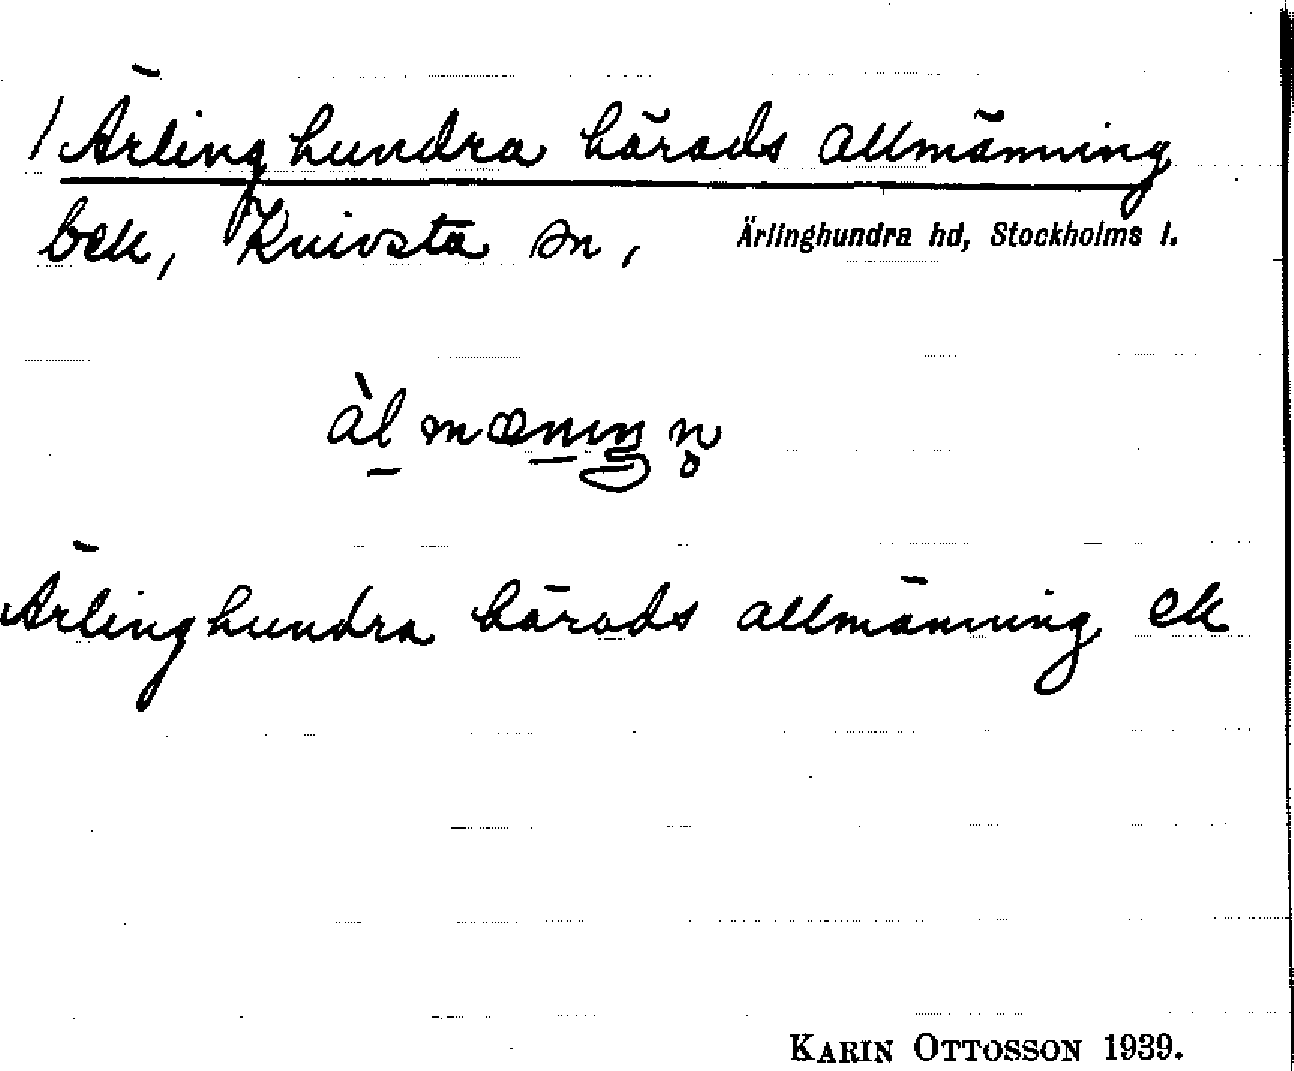 / Ärlinghundra härads allmänning
bek, Knivsta sn, Ärlinghundra hd, Stockholms l.
àlmænıŋn̥
Ärlinghundra härads allmänning ek
KARIN OTTOSSON 1939.